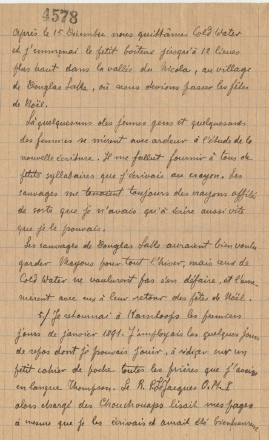 4578
Après le 15 Décembre nous quittâmes Cold Water
et j'emmenai le petit boiteux jusqu'à 12 lieues
plus haut dans la vallée du Nicola, au village
de Douglas Lake, où nous devions passer les fêtes
de Noël.
Là quelquesuns des jeunes gens et quelquesunes
des femmes se mirent avec ardeur à l'étude de la
nouvelle écriture. Il me fallut fournir à tous de
petits syllabaires que j'écrivais au crayon. Les
sauvages me tenaient toujours des crayons affilés
de sorte que je n'avais qu'à écrire aussi vite
que je le pouvais.
Les sauvages de Douglas Lake auraient bien voulu
garder Mayous pour tout l'hiver, mais ceux de
Cold Water ne voulurent pas s'en défaire, et l'em-
menèrent avec eux à leur retour des fêtes de Noël.
5/ Je retournai à Kamloops les premiers
jours de janvier 1891. J'employais les quelques jours
de repos dont je pouvais jouir, à rédiger sur un
petit cahier de poche toutes les prières que j'avais
en langue Thompson. Le R. P. Jacques O.M.I
alors chargé des Chouchouaps lisait mes pages
à mesure que je les écrivais et aurait été bienheureux